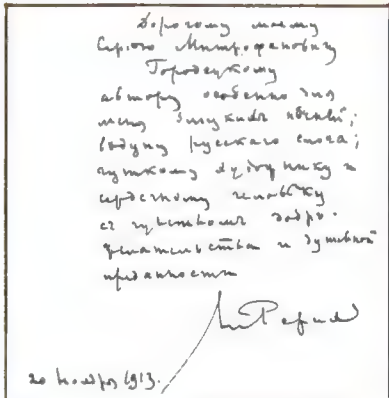 Дорогому моему
Сергею Митрофановичу
Городецкому
автору особенно для
меня звучных песней;
ведуну русскаго слога;
чуткому художнику и
сердечному человѣку
съ чувствомъ добро-
желательства и душевной
преданности
Н Рерихъ
20 Ноября 1913.